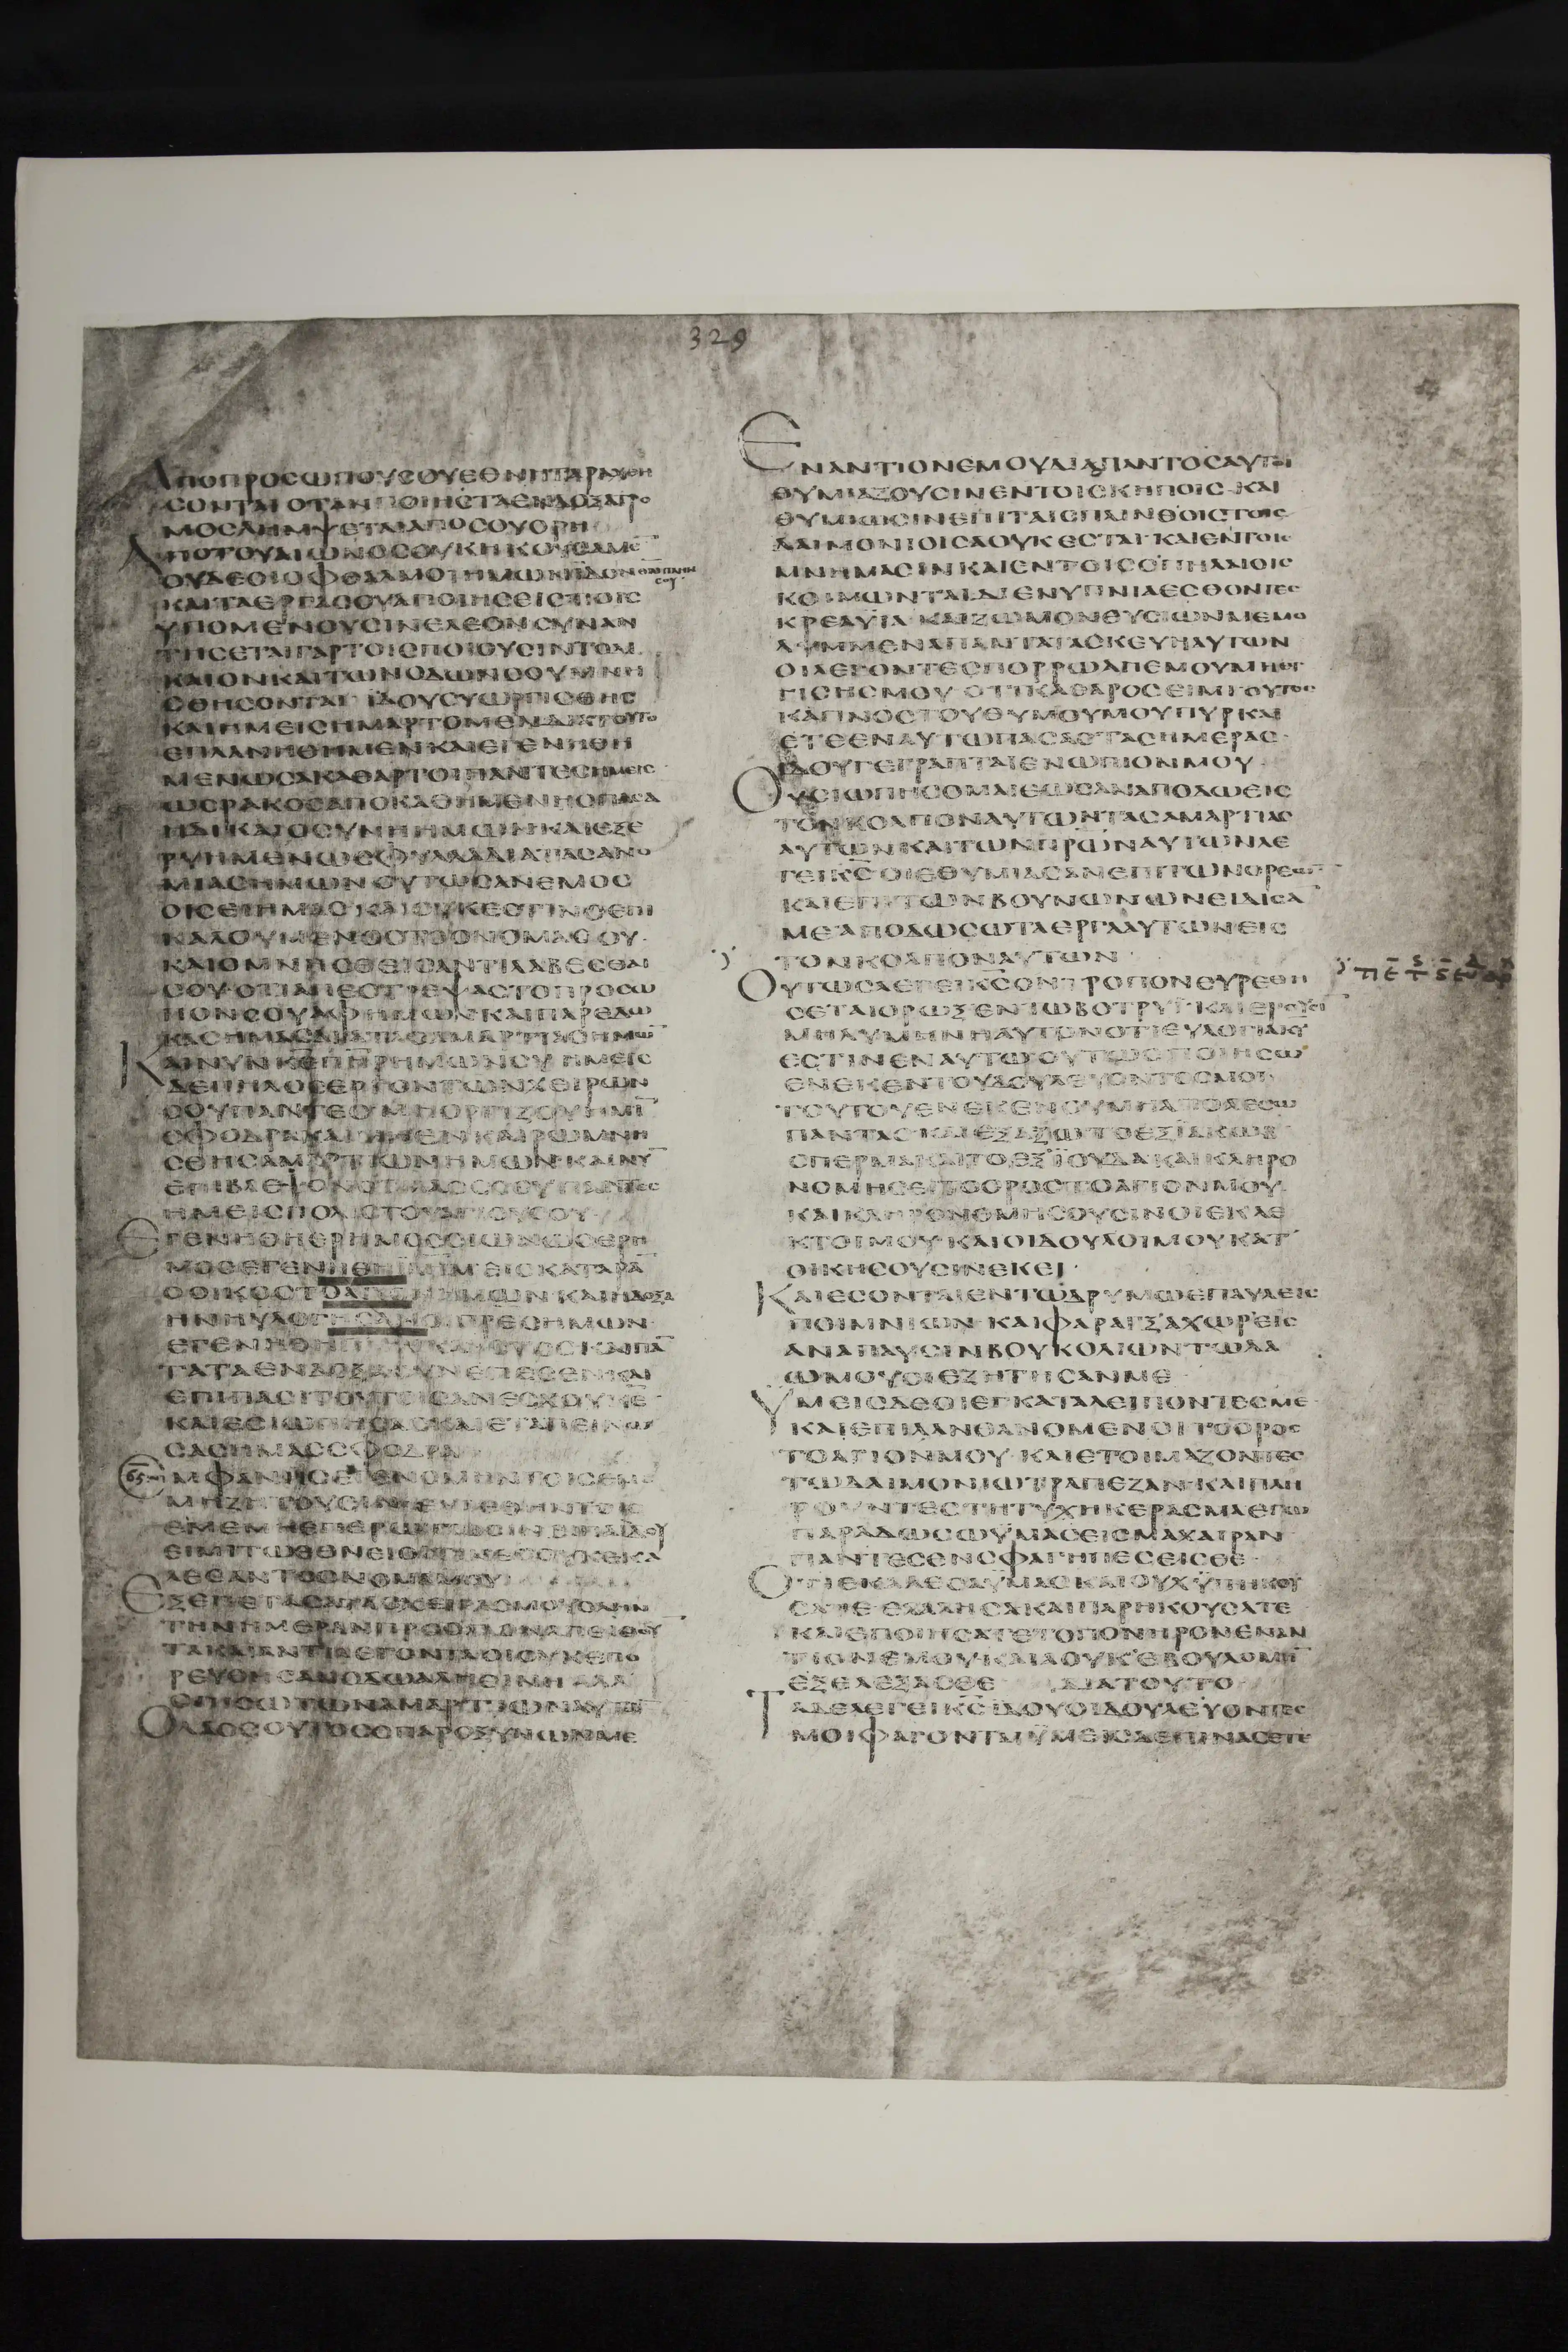 329
ΑΠΟΠΡΟCΩΠΟΥCΟΥΕΘΝΗΤΑΡΑΧΘΗ
CΟΝΤΑΙΟΤΑΝΠΟΙΗC
ΑΠΟΤΟΥΑΙΩΝΟCΟΥΚΗΚΟΥCΑΜΕ
ΟΥΔΕΟΙΟΦΘΑΛΜΟΙΗΜΩΝΙΔΟΝ
ΚΑΙΤΑΕΡΓΑCΟΥΑΠΟΙΗCΕΙCΤΟΙC
ΥΠΟΜΕΝΟΥCΙΝΕΛΕΟΝCΥΝΑΝ
ΤΗCΕΤΑΙΓΑΡΤΟΙCΠΟΙΟΥCΙΝΤΟΔΙ
ΚΑΙΟΝΚΑΙΤΩΝΟΔΩΝCΟΥΜΝΗ
CΘΗCΟΝΤΑΙ ΙΔΟΥCΥΩΡΓΙCΘΗC
ΚΑΙΗΜΕΙCΗΜΑΡΤΟΜΕΝΔΙΑΤΟΥΤΟ
ΕΠΛΑΝΗΘΗΜΕΝΚΑΙΕΓΕΝΗΘΗ
ΜΕΝΩCΑΚΑΘΑΡΤΟΙΠΑΝΤΕCΗΜΕΙC
ΩCΡΑΚΟCΑΠΟΚΑΘΗΜΕΝΗCΠΑCΑ
ΗΔΙΚΑΙΟCΥΝΗΗΜΩΝΚΑΙΕΞΕ
ΡΥΗΜΕΝΩCΦΥΛΛΑΔΙΑΤΑCΑΝΟ
ΜΙΑCΗΜΩΝΟΥΤΩCΑΝΕΜΟC
ΟΙCΕΙΗΜΑCΚΑΙΟΥΚΕCΤΙΝΟΕΠΙ
ΚΑΛΟΥΜΕΝΟCΤΟΟΝΟΜΑCΟΥ·
ΚΑΙΟΜΝΗCΘΕΙCΑΝΤΙΛΑΒΕCΘΑΙ
CΟΥΟΤΙΑΠΕCΤΡΕΨΑCΤΟΠΡΟCΩ
ΠΟΝCΟΥΑΦΗΜΩΝΚΑΙΠΑΡΕΔΩ
ΚΑCΗΜΑCΔΙΑΤΑCΑΜΑΡΤΙΑCΗΜΩ
ΚΑΙΝΥΝΚΕΠΗΡΗΜΩΝCΥ ΗΜΕΙC
ΔΕΠΗΛΟCΕΡΓΟΝΤΩΝΧΕΙΡΩΝ
CΟΥΠΑΝΤΕCΜΗΟΡΓΙΖΟΥΗΜΙ
CΦΟΔΡΑΚΑΙΜΗΕΝΚΑΙΡΩΜΝΗ
CΘΗCΑΜΑΡΤΙΩΝΗΜΩΝΚΑΙΝΥ
ΗΜΕΙCΠΟΛΙCΤΟΥΑΓΙΟΥCΟΥ
ΕΓΕΝΗΘΗΕΡΗΜΟCCΙΩΝΩCΕΡΗ
ΜΟCΕΓΕΝΗΘΗΙΛΗΜΕΙCΚΑΤΑΡΑ
ΟΟΙΚΟCΤΟΑΓΙΟΝΗΜΩΝΚΑΙΗΔΟΞΑ
ΗΝΗΥΛΟΓΗCΑΝΟΙΠΡΕCΗΜΩΝ
ΤΑΤΑΕΝΔΟΞΑCΥΝΕΠΕCΕΝΚΑΙ
ΕΠΙΠΑCΙΤΟΥΤΟΙCΑΝΕCΧΟΥΚΕ
ΚΑΙΕCΙΩΠΗCΑCΚΑΙΕΤΑΠΕΙΝΩ
CΑCΗΜΑCCΦΟΔΡΑ
ΕΜΦΑΝΗCΕΓΕΝΟΜΗΝΤΟΙCΕΜΕ
ΜΗΖΗΤΟΥCΙΝΕΥΡΕΘΗΝΤΟΙC
ΕΜΕΜΗΕΠΕΡΩΤΩCΙΝΕΙΠΑΙΔΟΥ
ΛΕCΑΝΤΟΟΝΟΜΑΜΟΥ
ΕΞΕΠΕΤΑCΑΤΑCΧΕΙΡΑCΜΟΥΟΛΗΝ
ΤΗΝΗΜΕΡΑΝΠΡΟCΛΑΟΝΑΠΕΙΘΟΥ
ΤΑΚΑΙΑΝΤΙΛΕΓΟΝΤΑΟΙΟΥΚΕΠΟ
ΡΕΥΘΗCΑΝΟΔΩΑΛΗΘΙΝΗΑΛΛΑ
ΟΠΙCΩΤΩΝΑΜΑΡΤΙΩΝΑΥΤΩ
ΟΛΑΟCΟΥΤΟCΟΠΑΡΟΞΥΝΩΝΜΕ
ΕΝΑΝΤΙΟΝΕΜΟΥΔΙΑΠΑΝΤΟCΑΥΤΟΙ
ΘΥΜΙΑΖΟΥCΙΝΕΝΤΟΙCΚΗΠΟΙC·ΚΑΙ
ΘΥΜΙΩCΙΝΕΠΙΤΑΙCΠΛΙΝΘΟΙCΤΟΙC
ΔΑΙΜΟΝΙΟΙCΑΟΥΚΕCΤΑΙ·ΚΑΙΕΝΤΟΙC
ΜΝΗΜΑCΙΝΚΑΙΕΝΤΟΙCCΠΗΛΑΙΟΙC
ΚΟΙΜΩΝΤΑΙΔΙΕΝΥΠΝΙΑΕCΘΟΝΤΕC
ΚΡΕΑΫΙΑ ΚΑΙΖΩΜΟΝΘΥCΙΩΝΜΕΜΟ
ΛΥΜΜΕΝΑΠΑΝΤΑΤΑCΚΕΥΗΑΥΤΩΝ
ΟΙΛΕΓΟΝΤΕCΠΟΡΡΩΑΠΕΜΟΥΜΗΕΓ
ΓΙCΗCΜΟΥ ΟΤΙΚΑΘΑΡΟCΕΙΜΙΟΥΤΟC
ΚΑΠΝΟCΤΟΥΘΥΜΟΥΜΟΥΠΥΡΚΑΙ
ΕΤΕΕΝΑΥΤΩΠΑCΑCΤΑCΗΜΕΡΑC·
ΙΔΟΥΓΕΓΡΑΠΤΑΙΕΝΩΠΙΟΝΜΟΥ·
ΟΥCΙΩΠΗCΟΜΑΙΕΩCΑΝΑΠΟΔΩΕΙC
ΤΟΝΚΟΛΠΟΝΑΥΤΩΝΤΑCΑΜΑΡΤΙΑC
ΑΥΤΩΝΚΑΙΤΩΝΠΡΩΝΑΥΤΩΝΛΕ
ΓΕΙΚCΟΙΕΘΥΜΙΑCΑΝΕΠΙΤΩΝΟΡΕΩ
ΚΑΙΕΠΙΤΩΝΒΟΥΝΩΝΩΝΕΙΔΙCΑ
ΜΕΑΠΟΔΩCΩΤΑΕΡΓΑΑΥΤΩΝΕΙC
ΤΟΝΚΟΛΠΟΝΑΥΤΩΝ·
ΟΥΤΩCΛΕΓΕΙΚCΟΝΤΡΟΠΟΝΕΥΡΕΘΗ
CΕΤΑΙΟΡΩΞΕΝΤΩΒΟΤΡΥΙ·ΚΑΙΕΡΟΥCΙ
ΜΗΛΥΜΗΝΗΑΥΤΟΝΟΤΙΕΥΛΟΓΙΑΚΥ
ΕCΤΙΝΕΝΑΥΤΩΟΥΤΩCΠΟΙΗCΩ
ΕΝΕΚΕΝΤΟΥΔΟΥΛΕΥΟΝΤΟCΜΟΙ·
ΤΟΥΤΟΥΕΝΕΚΕΝΟΥΜΗΑΠΟΛΕCΩ
ΠΑΝΤΑCΚΑΙΕΞΑΞΩΤΟΕΞΙΑΚΩΒ
CΠΕΡΜΑΚΑΙΤΟΕΞΪΟΥΔΑΚΑΙΚΛΗΡΟ
ΝΟΜΗCΕΙΤΟΟΡΟCΤΟΑΓΙΟΝΜΟΥ
ΚΑΙΚΛΗΡΟΝΟΜΗCΟΥCΙΝΟΙΕΚΛΕ
ΚΤΟΙΜΟΥ·ΚΑΙΟΙΔΟΥΛΟΙΜΟΥΚΑΤ
ΟΙΚΗCΟΥCΙΝΕΚΕΙ·
ΚΑΙΕCΟΝΤΑΙΕΝΤΩΔΡΥΜΩΕΠΑΥΛΕΙC
ΠΟΙΜΝΙΩΝ·ΚΑΙΦΑΡΑΓΞΑΧΩΡΕΙC
ΑΝΑΠΑΥCΙΝΒΟΥΚΟΛΙΩΝΤΩΛΑ
ΩΜΟΥΟΙΕΖΗΤΗCΑΝΜΕ
ΫΜΕΙCΔΕΟΙΕΓΚΑΤΑΛΕΙΠΟΝΤΕCΜΕ
ΚΑΙΕΠΙΛΑΝΘΑΝΟΜΕΝΟΙΤΟΟΡΟC
ΤΟΑΓΙΟΝΜΟΥ·ΚΑΙΕΤΟΙΜΑΖΟΝΤΕC
ΤΩΔΑΙΜΟΝΙΩΤΡΑΠΕΖΑΝ·ΚΑΙΠΛΗ
ΡΟΥΝΤΕCΤΗΤΥΧΗΚΕΡΑCΜΑΕΓΩ
ΠΑΡΑΔΩCΩΫΜΑCΕΙCΜΑΧΑΙΡΑΝ
ΠΑΝΤΕCΕΝCΦΑΓΗΠΕCΕΙCΘΕ·
ΟΤΙΕΚΑΛΕCΑΫΜΑCΚΑΙΟΥΧΫΠΗΚΟΥ
CΑΤΕ·ΕΛΑΛΗCΑΚΑΙΠΑΡΗΚΟΥCΑΤΕ
ΚΑΙΕΠΟΙΗCΑΤΕΤΟΠΟΝΗΡΟΝΕΝΑΝ
ΤΙΟΝΕΜΟΥ·ΚΑΙΑΟΥΚΕΒΟΥΛΟΜΗ
ΕΞΕΛΕΞΑCΘΕ ΔΙΑΤΟΥΤΟ
ΤΑΔΕΛΕΓΕΙΚCΙΔΟΥΟΙΔΟΥΛΕΥΟΝΤΕC
ΜΟΙΦΑΓΟΝΤΑΙΫΜΕΙCΔΕΠΙΝΑCΕΤΕ